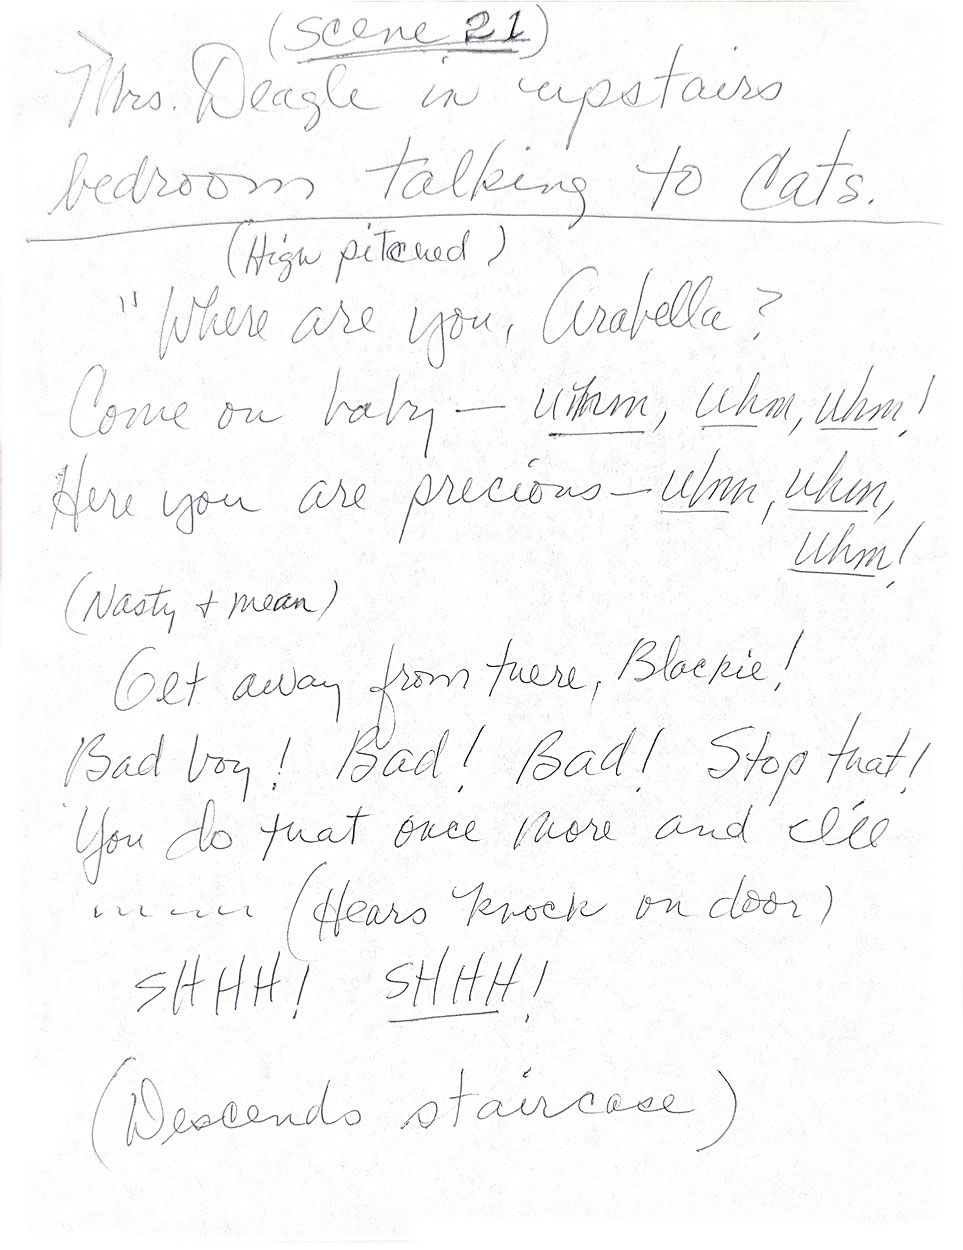 (Scene 21)
Mrs. Deagle in upstairs
bedroom talking to Cats.
(High pitched)
"Where are you, Arabella?
Come on baby — uhmm, uhm, uhm!
Here you are precious — uhm, uhm,
uhm!
(Nasty + mean)
Get away from there, Blackie!
Bad boy! Bad! Bad! Stop that!
You do that once more and I'll
-- --- --- (Hears knock on door)
SHHH! SHHH!
(Descends staircase)